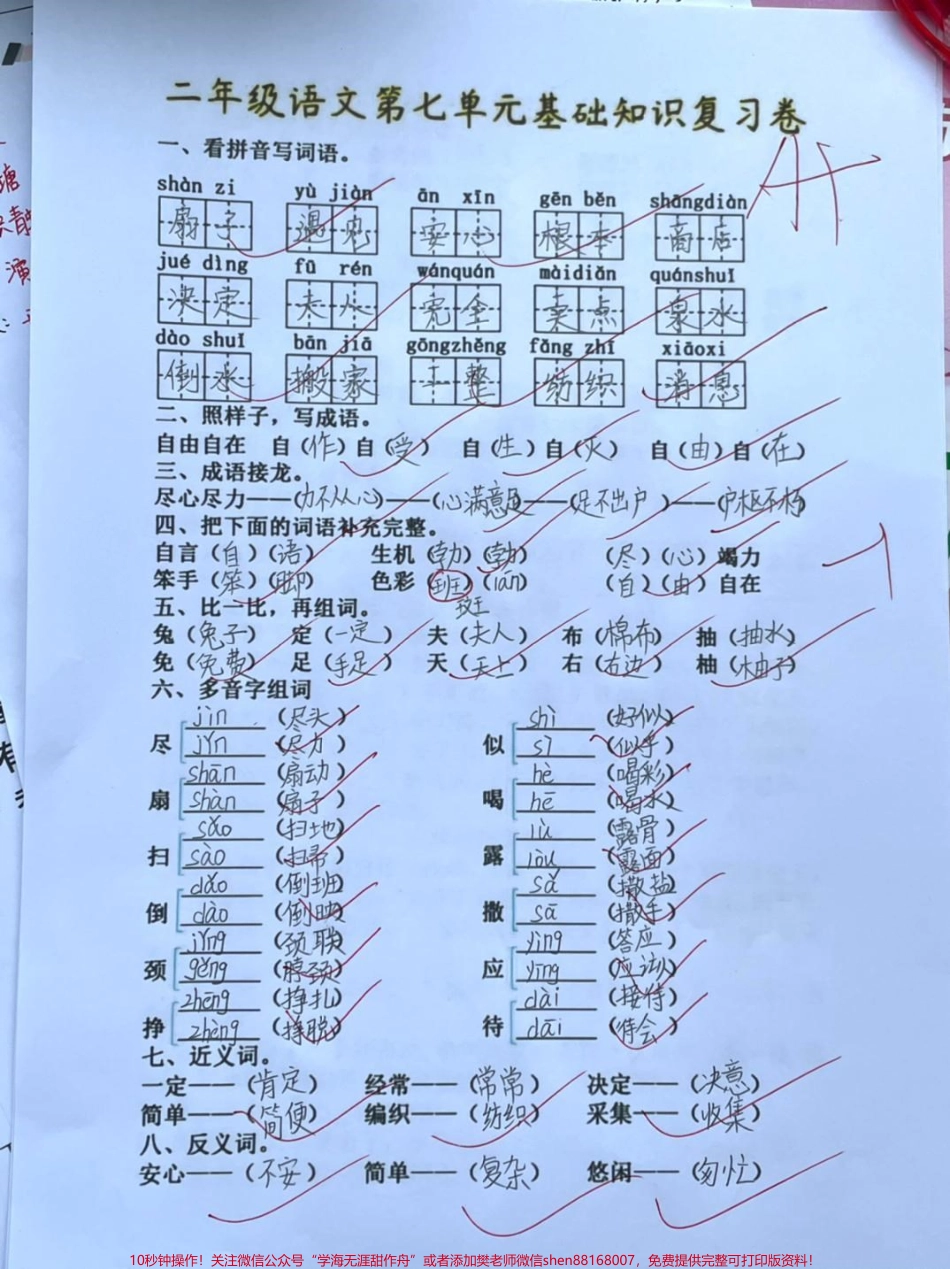 二年级语文第七单元基础知识复习卷
A+
一、看拼音写词语。
shàn zi yù jiàn ān xīn gēn běn shāngdiàn
扇子 遇见 安心 根本 商店
jué dìng fū rén wánquán màidiǎn quánshuǐ
决定 夫人 完全 卖点 泉水
dào shuǐ bān jiā gōngzhěng fǎng zhī xiāoxi
倒水 搬家 工整 纺织 消息
二、照样子，写成语。
自由自在 自（作）自（受） 自（生）自（灭） 自（由）自（在）
三、成语接龙。
尽心尽力——（力不从心）——（心满意足——（足不出户）——（户枢不朽）
四、把下面的词语补充完整。
自言（自）（语） 生机（勃）（勃） （尽）（心）竭力
-1
笨手（笨）（脚） 色彩（班）（lán） （自）（由）自在
斑
五、比一比，再组词。
兔（兔子） 定（一定） 夫（夫人） 布（棉布） 抽（抽水）
免（免费） 足（手足） 天（天上） 右（右边） 柚（柚子）
六、多音字组词
jìn（尽头） shì（好似）
尽 jǐn（尽力） 似 sì（似乎）
shān（扇动） hè（喝彩）
扇 shàn（扇子） 喝 hē（喝水）
sǎo（扫地） lù（露骨）
扫 sào（扫帚） 露 lòu（露面）
dǎo（倒班） sǎ（撒盐）
倒 dào（倒映） 撒 sā（撒手）
jǐng（颈联） yìng（答应）
颈 gěng（脖颈） 应 yīng（应该）
zhēng（挣扎） dài（接待）
挣 zhèng（挣脱） 待 dāi（待会）
七、近义词。
一定——（肯定） 经常——（常常） 决定——（决意）
简单——（简便） 编织——（纺织） 采集——（收集）
八、反义词。
安心——（不安） 简单——（复杂） 悠闲——（匆忙）
10秒钟操作！关注微信公众号“学海无涯甜作舟”或者添加樊老师微信shen88168007，免费提供完整可打印版资料！